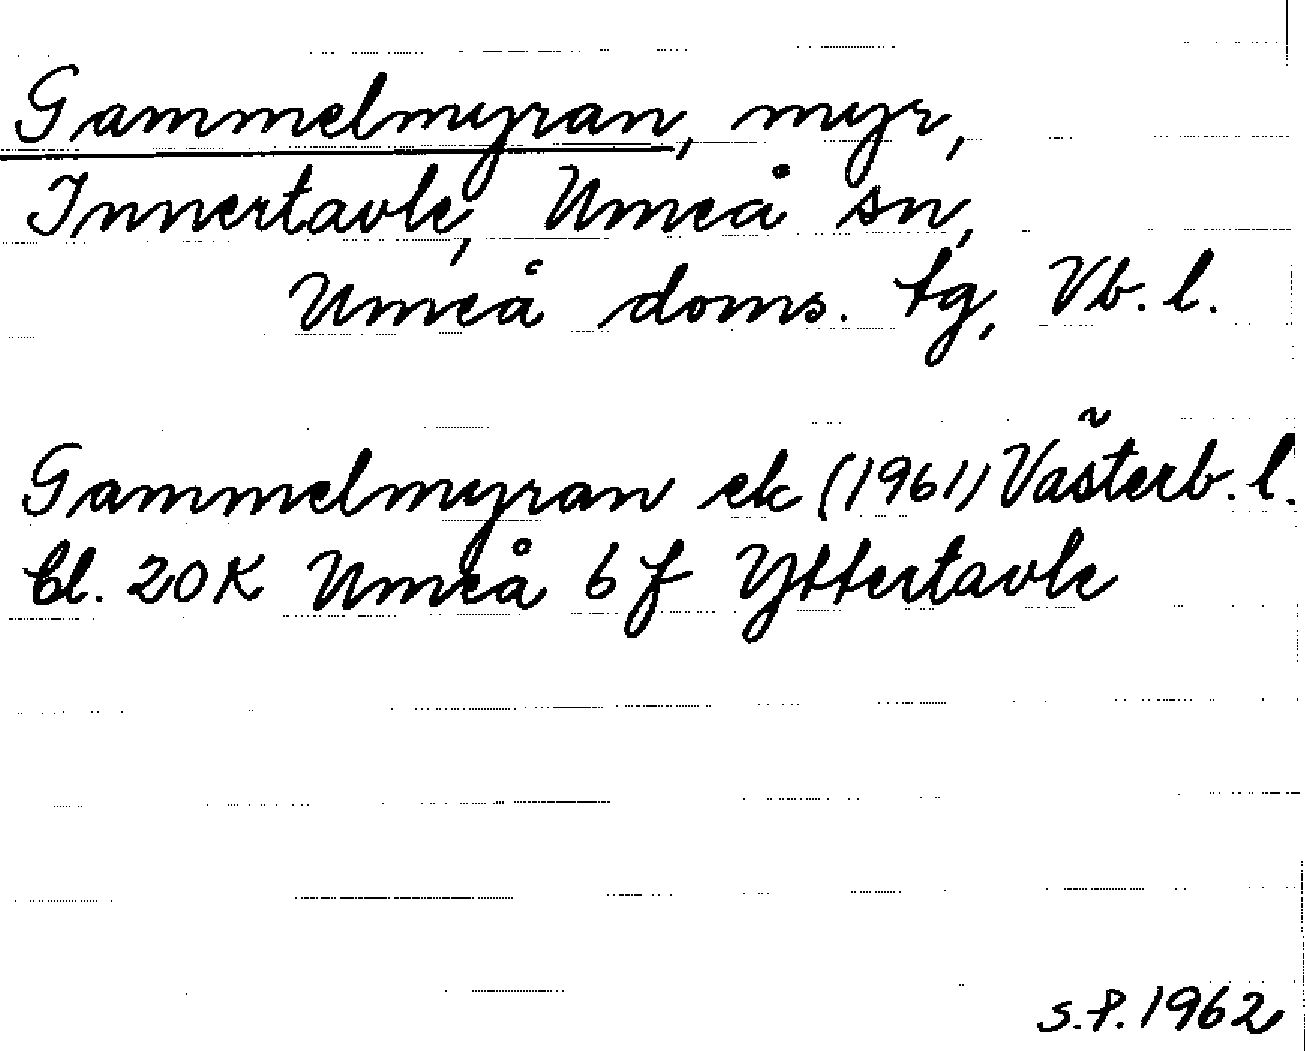 Gammelmyran, myr,
Innertavle, Umeå sn,
Umeå doms. tg, Vb. l.
Gammelmyran ek (1961) Västerb. l.
bl. 20K Umeå 6 f Yttertavle
S.P. 1962